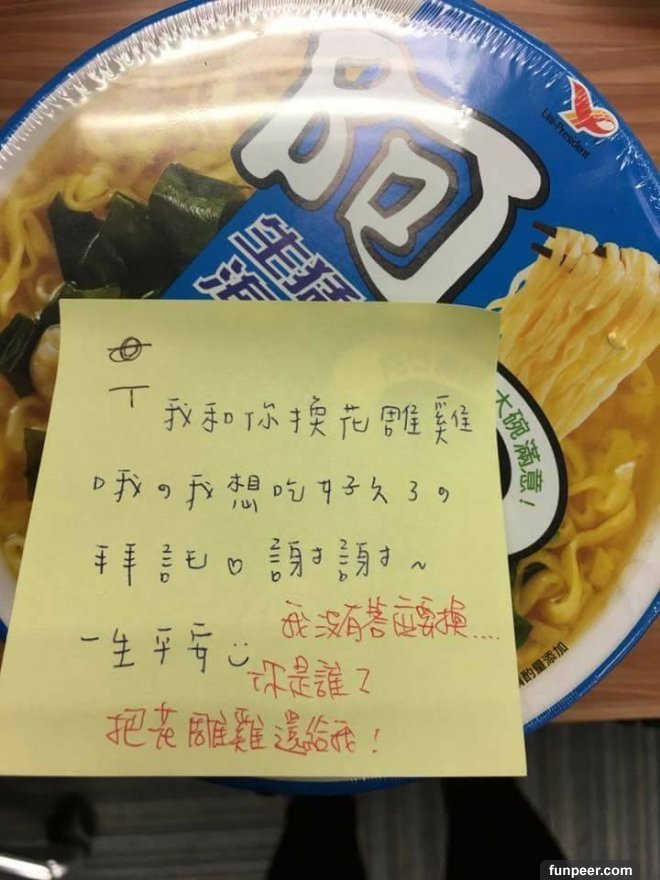 阿
Uni-President
生猛
海
大碗滿意!
我和你換花雕雞
哦。我想吃好久了。
拜託♡謝謝~
一生平安
我沒有答應要換....
你是誰?
把花雕雞還給我!
酌量添加
funpeer.com